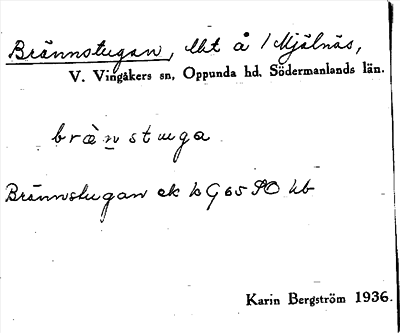 Brännstugan, lht å 1 Mjälnäs,
V. Vingåkers sn, Oppunda hd. Södermanlands län.
bràn̠stuga
Brännstugan ek bG 65 SO hb
Karin Bergström 1936.